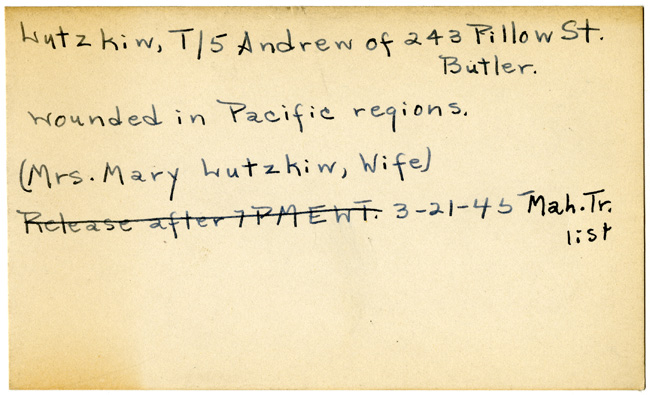 Wutzkiw, T/5 Andrew of 243 Pillow St.
Butler.
wounded in Pacific regions.
(Mrs. Mary Wutzkiw, Wife)
Release after 7PM EWT. 3-21-45 Mah. Tr.
list